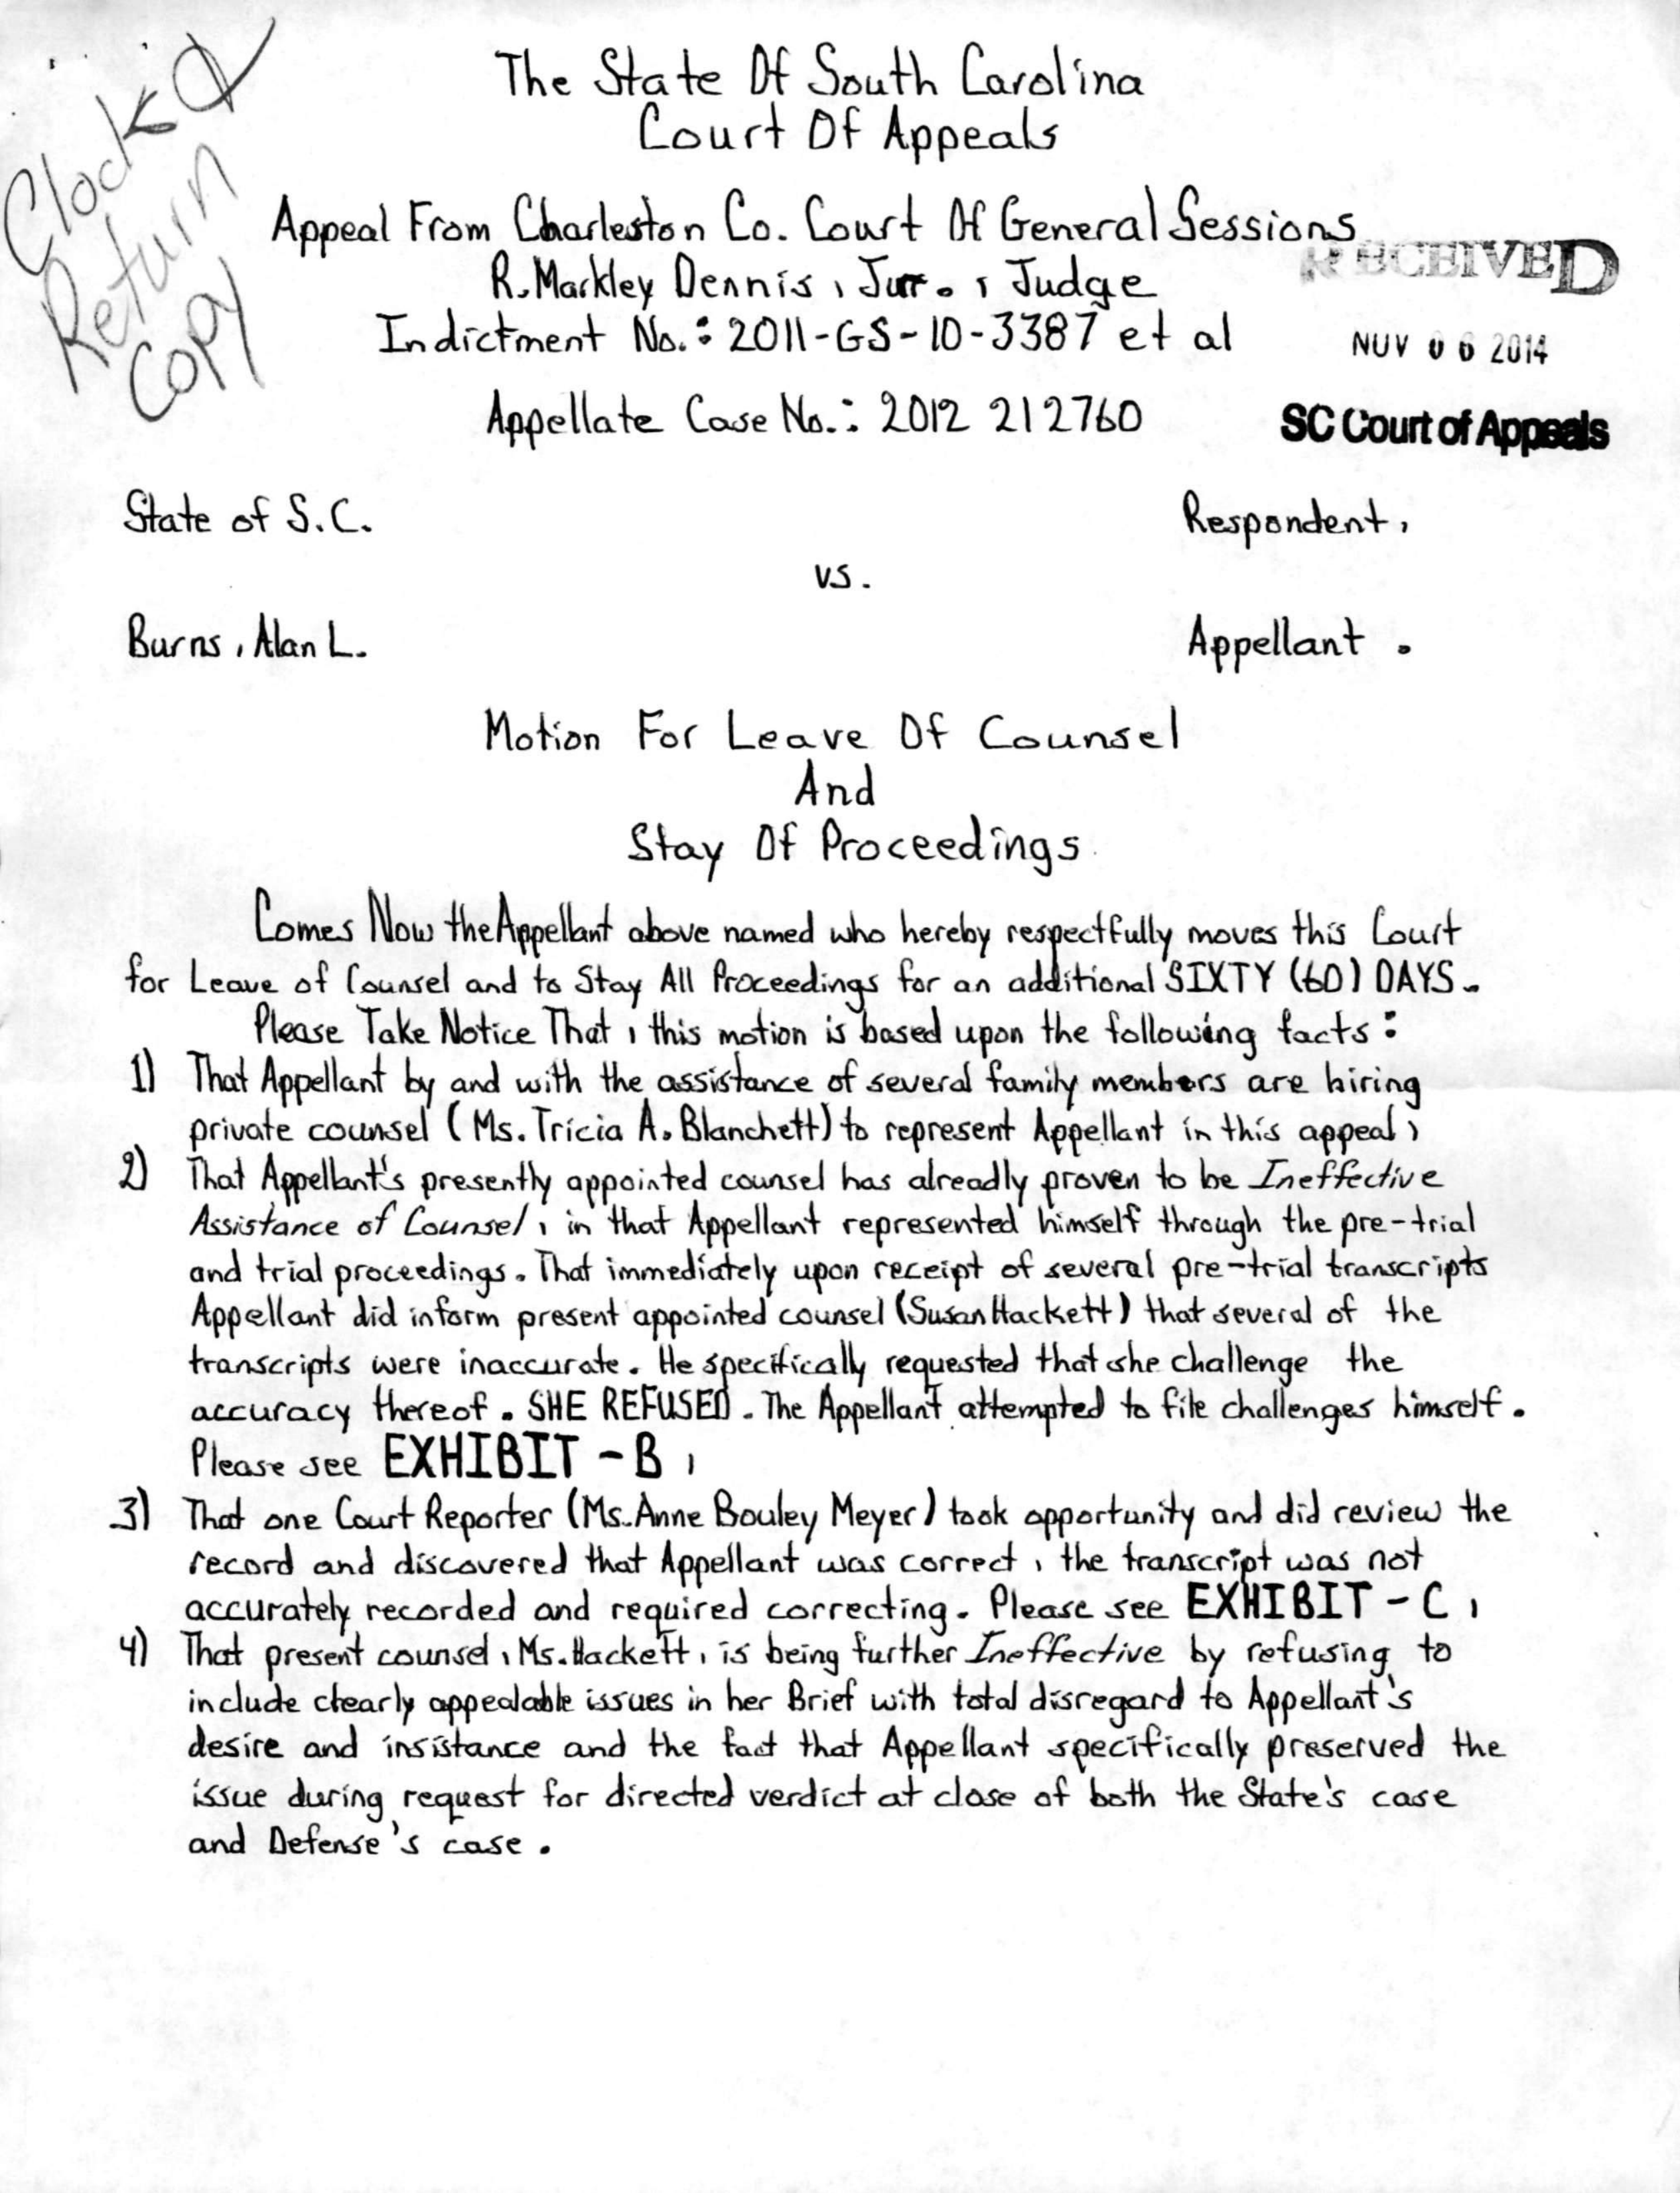 Clock &
Return
Copy
The State Of South Carolina
Court Of Appeals
Appeal From Charleston Co. Court Of General Sessions
R. Markley Dennis, Jr., Judge
RECEIVED
Indictment No.: 2011-GS-10-3387 et al
NOV 06 2014
Appellate Case No.: 2012 212760
SC Court of Appeals
State of S.C.
Respondent,
vs.
Burns, Alan L.
Appellant.
Motion For Leave Of Counsel
And
Stay Of Proceedings
Comes Now the Appellant above named who hereby respectfully moves this Court
for Leave of Counsel and to Stay All Proceedings for an additional SIXTY (60) DAYS.
Please Take Notice That, this motion is based upon the following facts:
1) That Appellant by and with the assistance of several family members are hiring
private counsel (Ms. Tricia A. Blanchett) to represent Appellant in this appeal,
2) That Appellant's presently appointed counsel has alreadly proven to be Ineffective
Assistance of Counsel, in that Appellant represented himself through the pre-trial
and trial proceedings. That immediately upon receipt of several pre-trial transcripts
Appellant did inform present appointed counsel (Susan Hackett) that several of the
transcripts were inaccurate. He specifically requested that she challenge the
accuracy thereof. SHE REFUSED. The Appellant attempted to file challenges himself.
Please see EXHIBIT - B,
3) That one Court Reporter (Ms. Anne Bouley Meyer) took opportunity and did review the
record and discovered that Appellant was correct, the transcript was not
accurately recorded and required correcting. Please see EXHIBIT - C,
4) That present counsel, Ms. Hackett, is being further Ineffective by refusing to
include clearly appealable issues in her Brief with total disregard to Appellant's
desire and insistance and the fact that Appellant specifically preserved the
issue during request for directed verdict at close of both the State's case
and Defense's case.